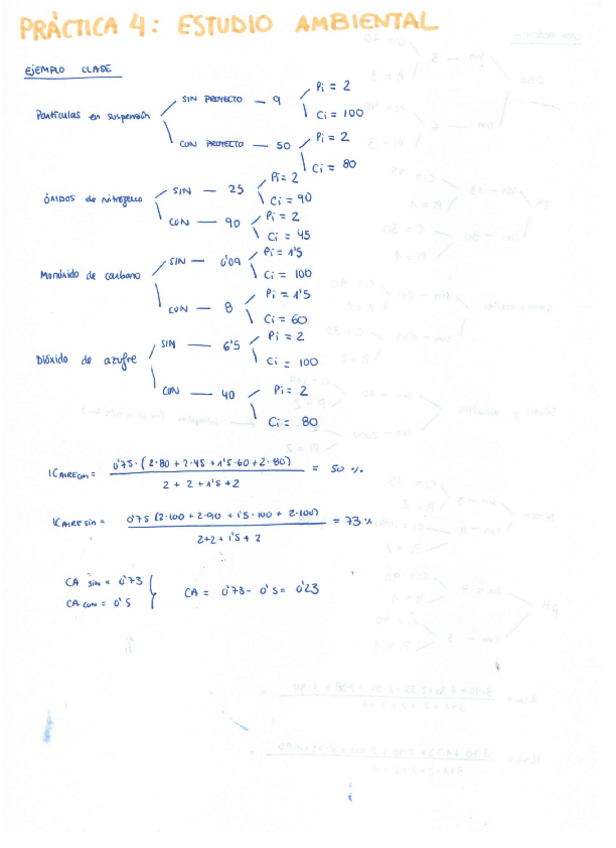 PRÁCTICA 4: ESTUDIO AMBIENTAL
EJEMPLO CLASE
Partículas en suspensión
SIN PROYECTO — 9
Pi = 2
Ci = 100
CON PROYECTO — 50
Pi = 2
Ci = 80
ÓXIDOS de nitrógeno
SIN — 25
Pi = 2
Ci = 90
CON — 90
Pi = 2
Ci = 45
Monóxido de carbono
SIN — 0'09
Pi = 1'5
Ci = 100
CON — 8
Pi = 1'5
Ci = 60
Dióxido de azufre
SIN — 6'5
Pi = 2
Ci = 100
CON — 40
Pi = 2
Ci = 80
ICAIRE con = 0'75 · (2·80 + 2·45 + 1'5·60 + 2·80) / 2 + 2 + 1'5 + 2 = 50 %
ICAIRE sin = 0'75 (2·100 + 2·90 + 1'5·100 + 2·100) / 2+2+1'5+2 = 73 %
CA sin = 0'73
CA con = 0'5
CA = 0'73 - 0'5 = 0'23